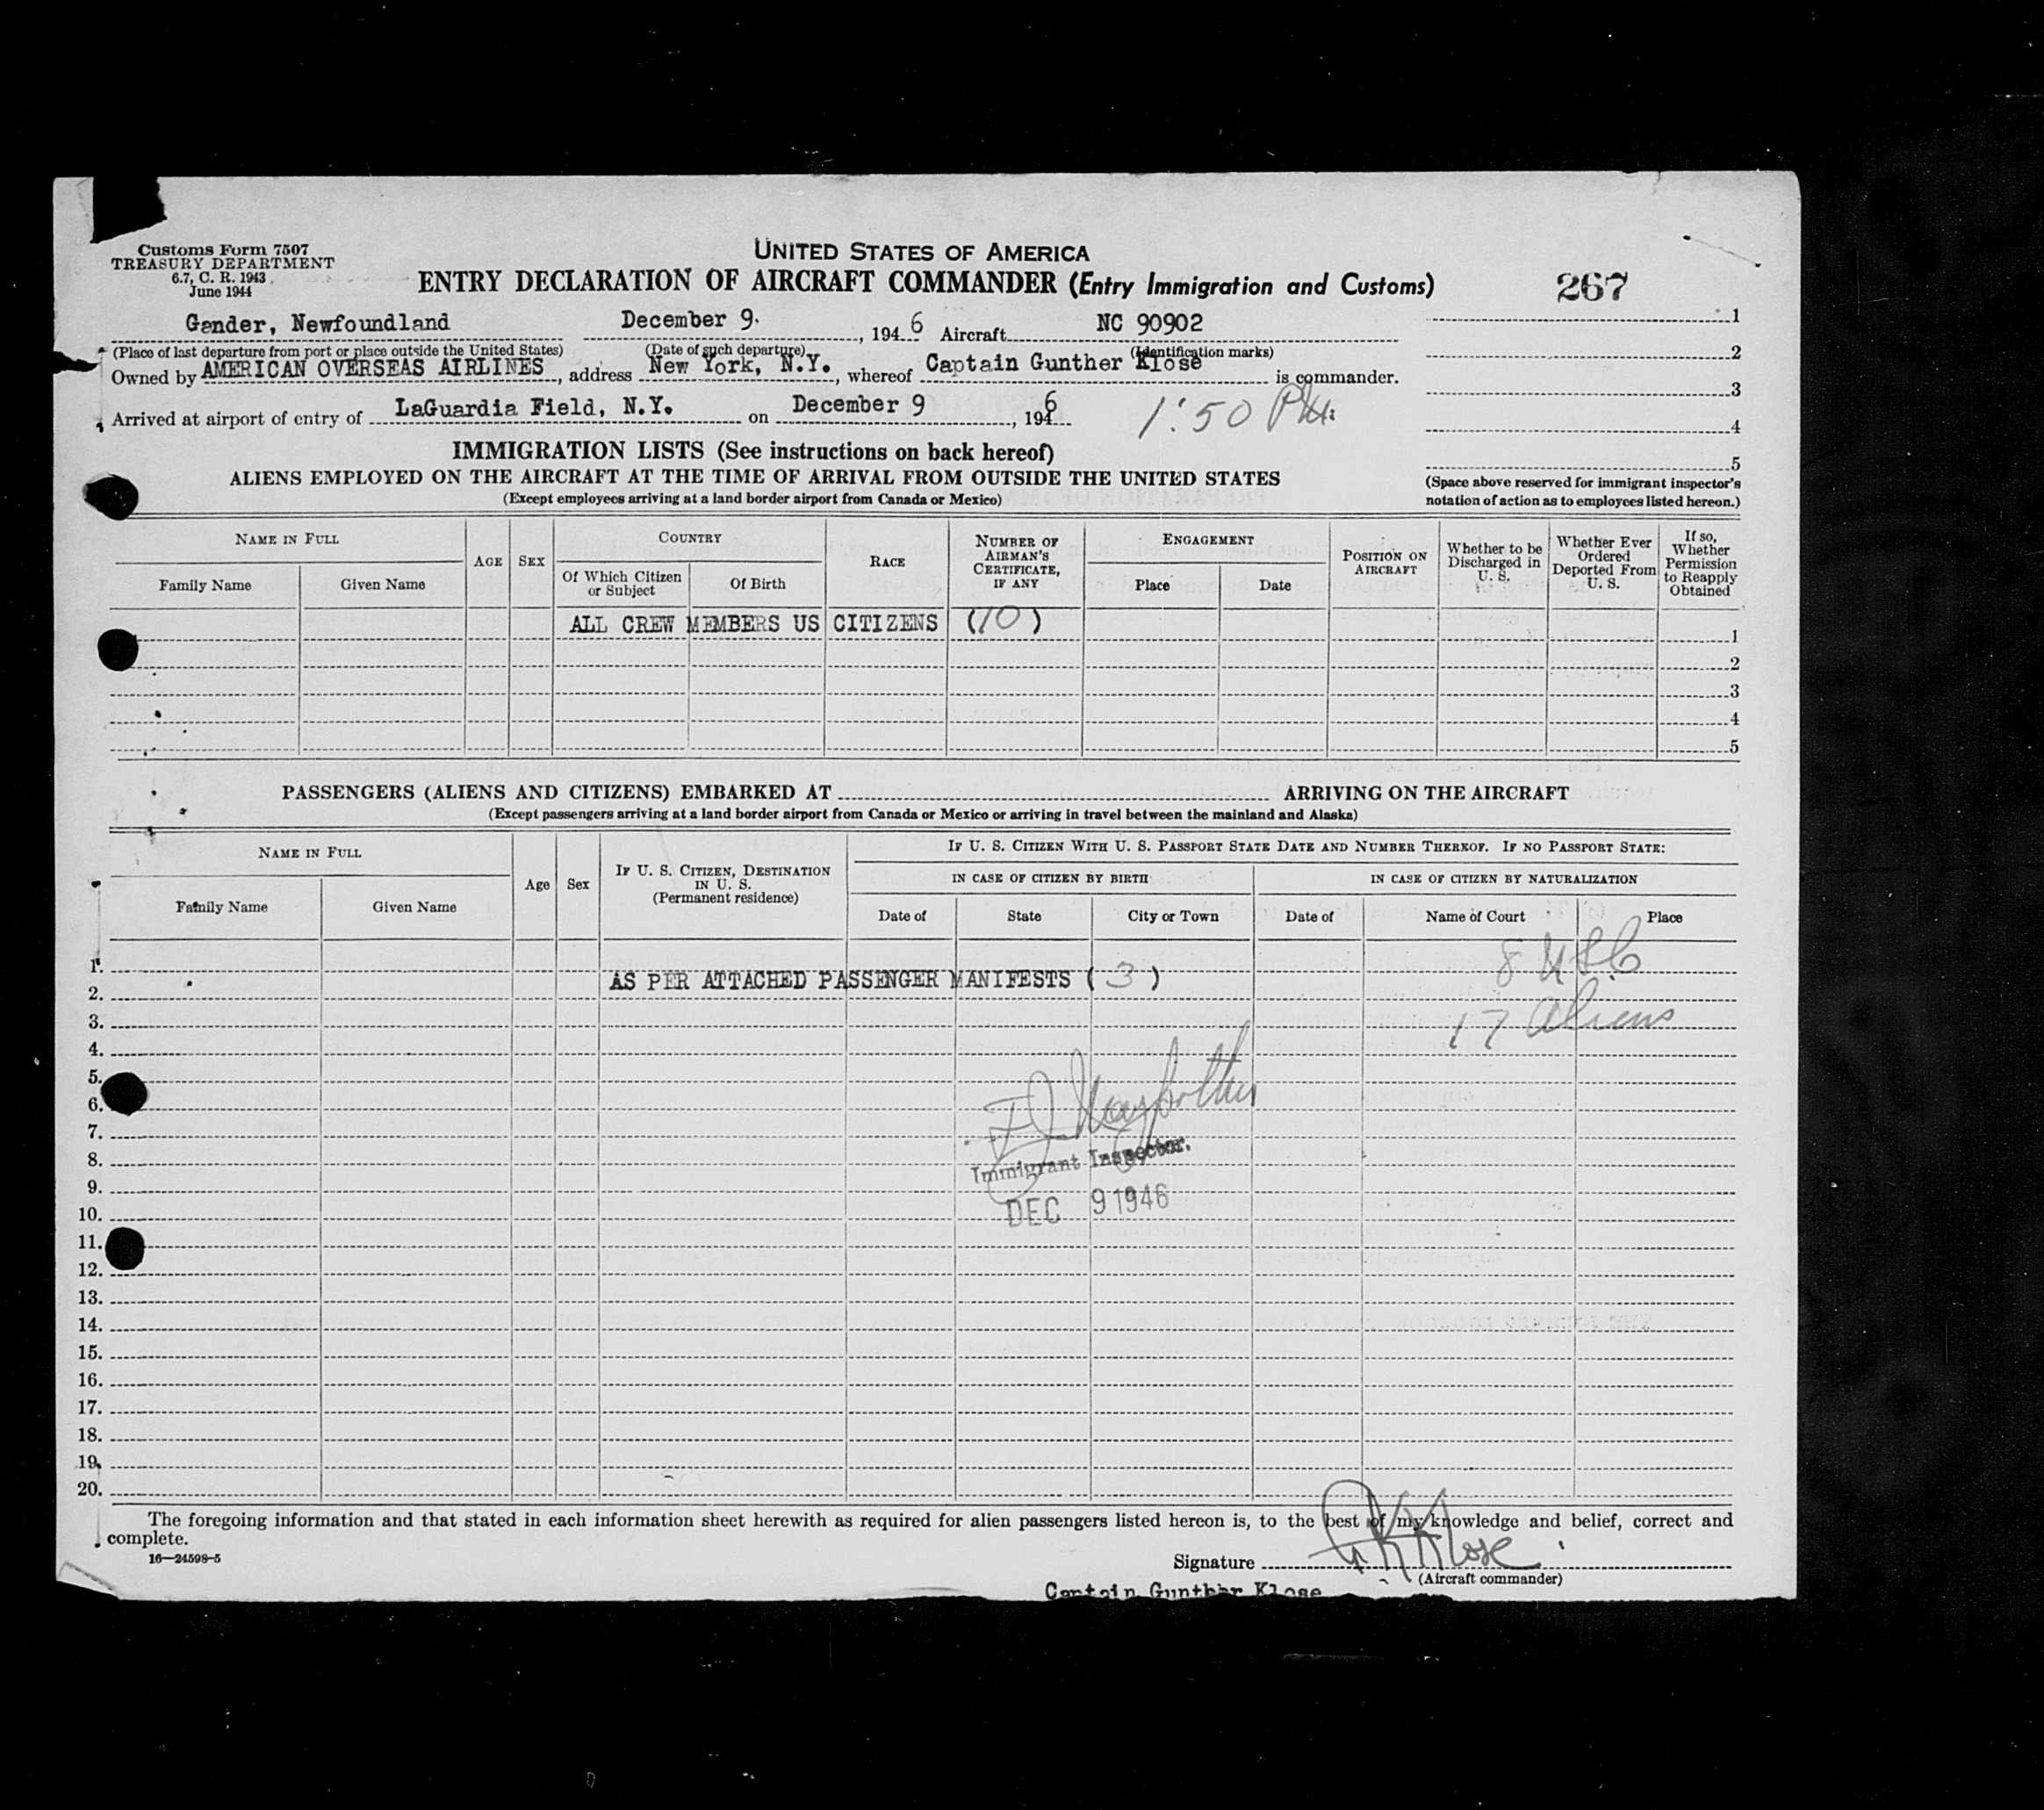 Customs Form 7507
TREASURY DEPARTMENT
6.7, C. R. 1943
June 1944
UNITED STATES OF AMERICA
ENTRY DECLARATION OF AIRCRAFT COMMANDER (Entry Immigration and Customs)
267
Gander, Newfoundland December 9. , 1946 Aircraft NC 90902
(Place of last departure from port or place outside the United States) (Date of such departure) (Identification marks)
Owned by AMERICAN OVERSEAS AIRLINES, address New York, N.Y., whereof Captain Gunther Klose is commander.
Arrived at airport of entry of LaGuardia Field, N.Y. on December 9, 1946 1:50 PM.
1
2
3
4
5
(Space above reserved for immigrant inspector's
notation of action as to employees listed hereon.)
IMMIGRATION LISTS (See instructions on back hereof)
ALIENS EMPLOYED ON THE AIRCRAFT AT THE TIME OF ARRIVAL FROM OUTSIDE THE UNITED STATES
(Except employees arriving at a land border airport from Canada or Mexico)
NAME IN FULL
Family Name Given Name
AGE SEX
COUNTRY
Of Which Citizen or Subject Of Birth
RACE
NUMBER OF AIRMAN'S CERTIFICATE, IF ANY
ENGAGEMENT
Place Date
POSITION ON AIRCRAFT
Whether to be Discharged in U. S.
Whether Ever Ordered Deported From U. S.
If so, Whether Permission to Reapply Obtained
ALL CREW MEMBERS US CITIZENS (10) 1
2
3
4
5
PASSENGERS (ALIENS AND CITIZENS) EMBARKED AT ARRIVING ON THE AIRCRAFT
(Except passengers arriving at a land border airport from Canada or Mexico or arriving in travel between the mainland and Alaska)
NAME IN FULL
Family Name Given Name
Age Sex
IF U. S. CITIZEN, DESTINATION IN U. S.
(Permanent residence)
IF U. S. CITIZEN WITH U. S. PASSPORT STATE DATE AND NUMBER THEREOF. IF NO PASSPORT STATE:
IN CASE OF CITIZEN BY BIRTH IN CASE OF CITIZEN BY NATURALIZATION
Date of State City or Town Date of Name of Court Place
1. 8 USC
AS PER ATTACHED PASSENGER MANIFESTS (3)
2.
3. 17 Aliens
4.
5.
6.
7.
8. Immigrant Inspector.
9.
10. DEC 9 1946
11.
12.
13.
14.
15.
16.
17.
18.
19.
20.
The foregoing information and that stated in each information sheet herewith as required for alien passengers listed hereon is, to the best of my knowledge and belief, correct and
complete.
16—24598-5
Signature G K Klose
(Aircraft commander)
Captain Gunther Klose